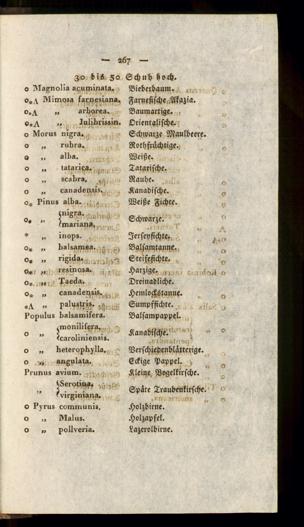 — 267 —
30 bis 50 Schuh hoch.
o Magnolia acuminata. Bieberbaum.
o*Λ Mimosa farnesiana. Farnesische Akazia.
o*Λ „ arborea. Baumartige.
o*Λ „ Julibrissin. Orientalische.
o Morus nigra. Schwarze Maulbeere.
o „ rubra. Rothfrüchtige.
o „ alba. Weiße.
o „ tatarica. Tatarische.
o „ scabra. Rauhe.
o „ canadensis. Kanadische.
o* Pinus alba. Weiße Fichte.
o* „ {nigra. mariana. Schwarze.
* „ inops. Jerseyfichte.
o* „ balsamea. Balsamtanne.
o* „ rigida. Steifefichte.
o* „ resinosa. Harzige.
o* „ Taeda. Dreinadliche.
o* „ canadensis. Hemlockstanne.
*Λ „ palustris. Sumpffichte.
Populus balsamifera. Balsampappel.
o „ {monilifera. caroliniensis. Kanadische.
o „ heterophylla. Verschiedenblätterige.
o „ angulata. Eckige Pappel.
Prunus avium. Kleine Vogelkirsche.
„ {Serotina. virginiana. Späte Traubenkirsche.
o Pyrus communis. Holzbirne.
o „ Malus. Holzapfel.
o „ pollveria. Lazerolbirne.